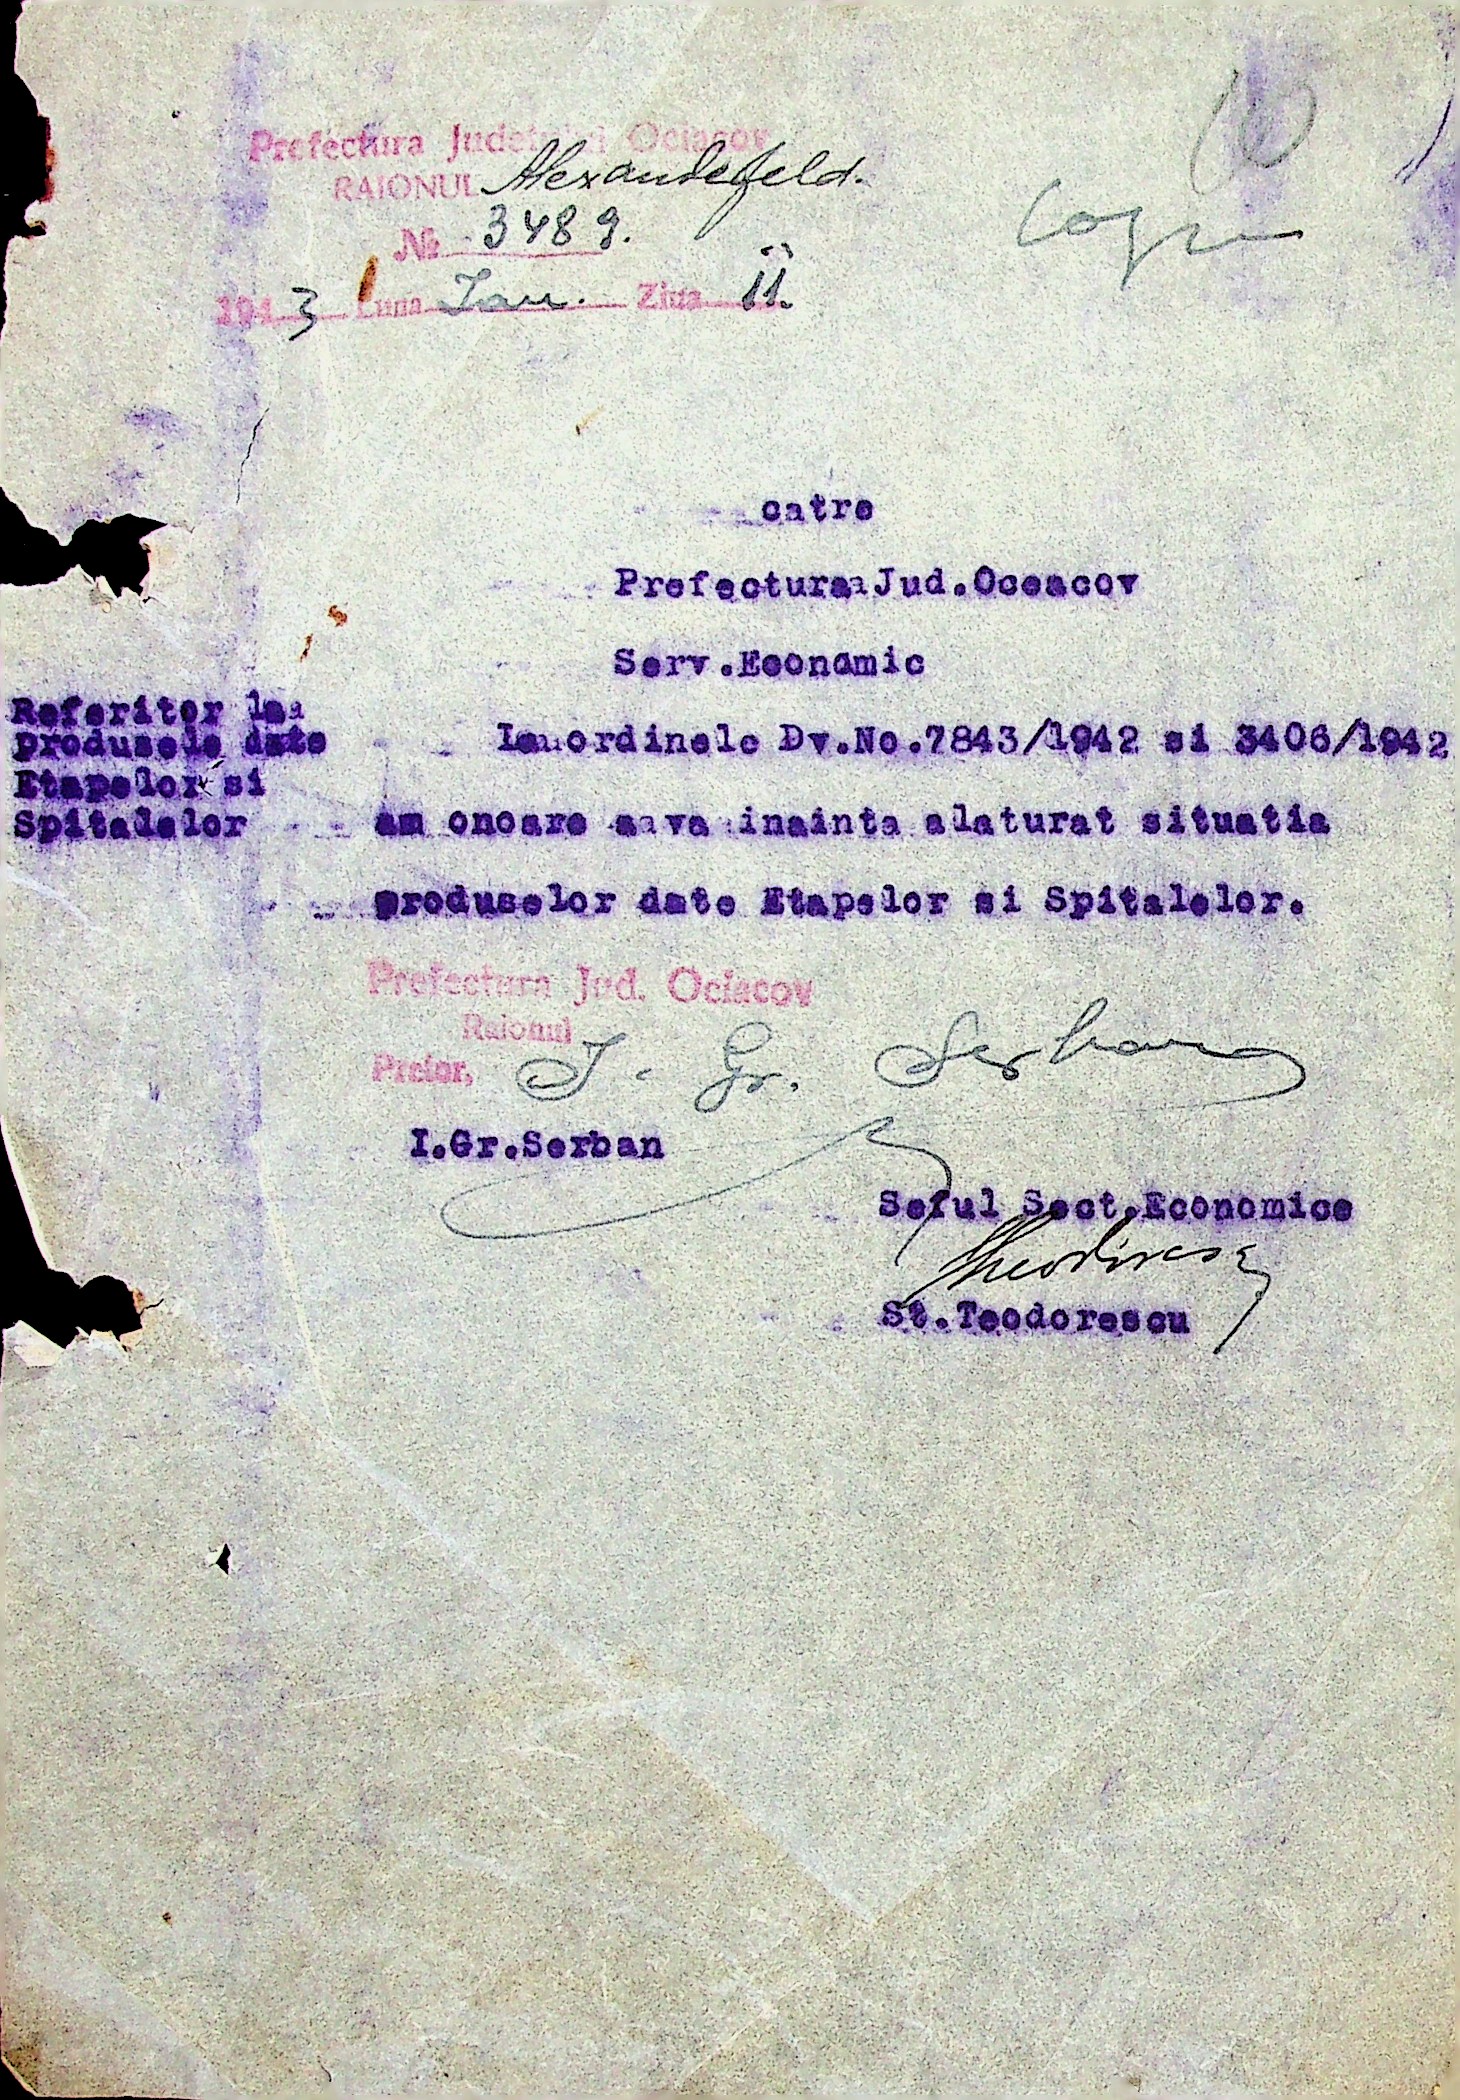 Prefectura Judetului Ociacov
RAIONUL Alexanderfeld.
№ 3489.
1943 Luna Ian. Ziua 11.
catre
Prefectura Jud.Oceacov
Serv.Economic
Referitor la
produsele date
Etapelor si
Spitalelor
La ordinele Dv.No.7843/1942 si 3406/1942
am onoare a va inainta alaturat situatia
produselor date Etapelor si Spitalelor.
Prefectura Jud. Ociacov
Raionul
Pretor,
I. Gr. Serban
I.Gr.Serban
Seful Sect.Economice
St.Teodorescu